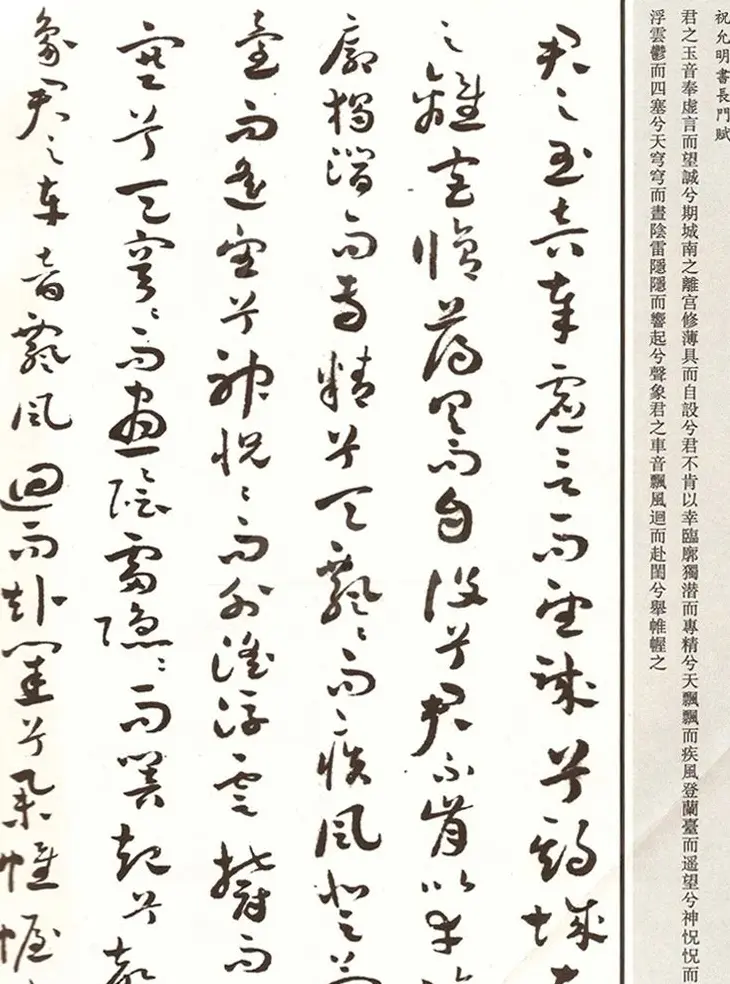 祝允明書長門賦
君之玉音奉虛言而望誠兮期城南之離宮修薄具而自設兮君不肯以幸臨廓獨潜而專精兮天飄飄而疾風登蘭臺而遥望兮神怳怳而
浮雲鬱而四塞兮天穹穹而晝陰雷隱隱而響起兮聲象君之車音飄風迴而赴閨兮舉帷幄之
君之玉音奉虛言而望誠兮期城
之離宮脩薄具而自設兮君不肯以幸臨
廓獨潛而專精兮天飄〻而疾風登蘭
臺而遙望兮神怳〻而外淫浮雲鬱而
塞兮天穹〻而晝陰雷隱〻而響起兮聲
象君之車音飄風迴而赴閨兮舉帷幄